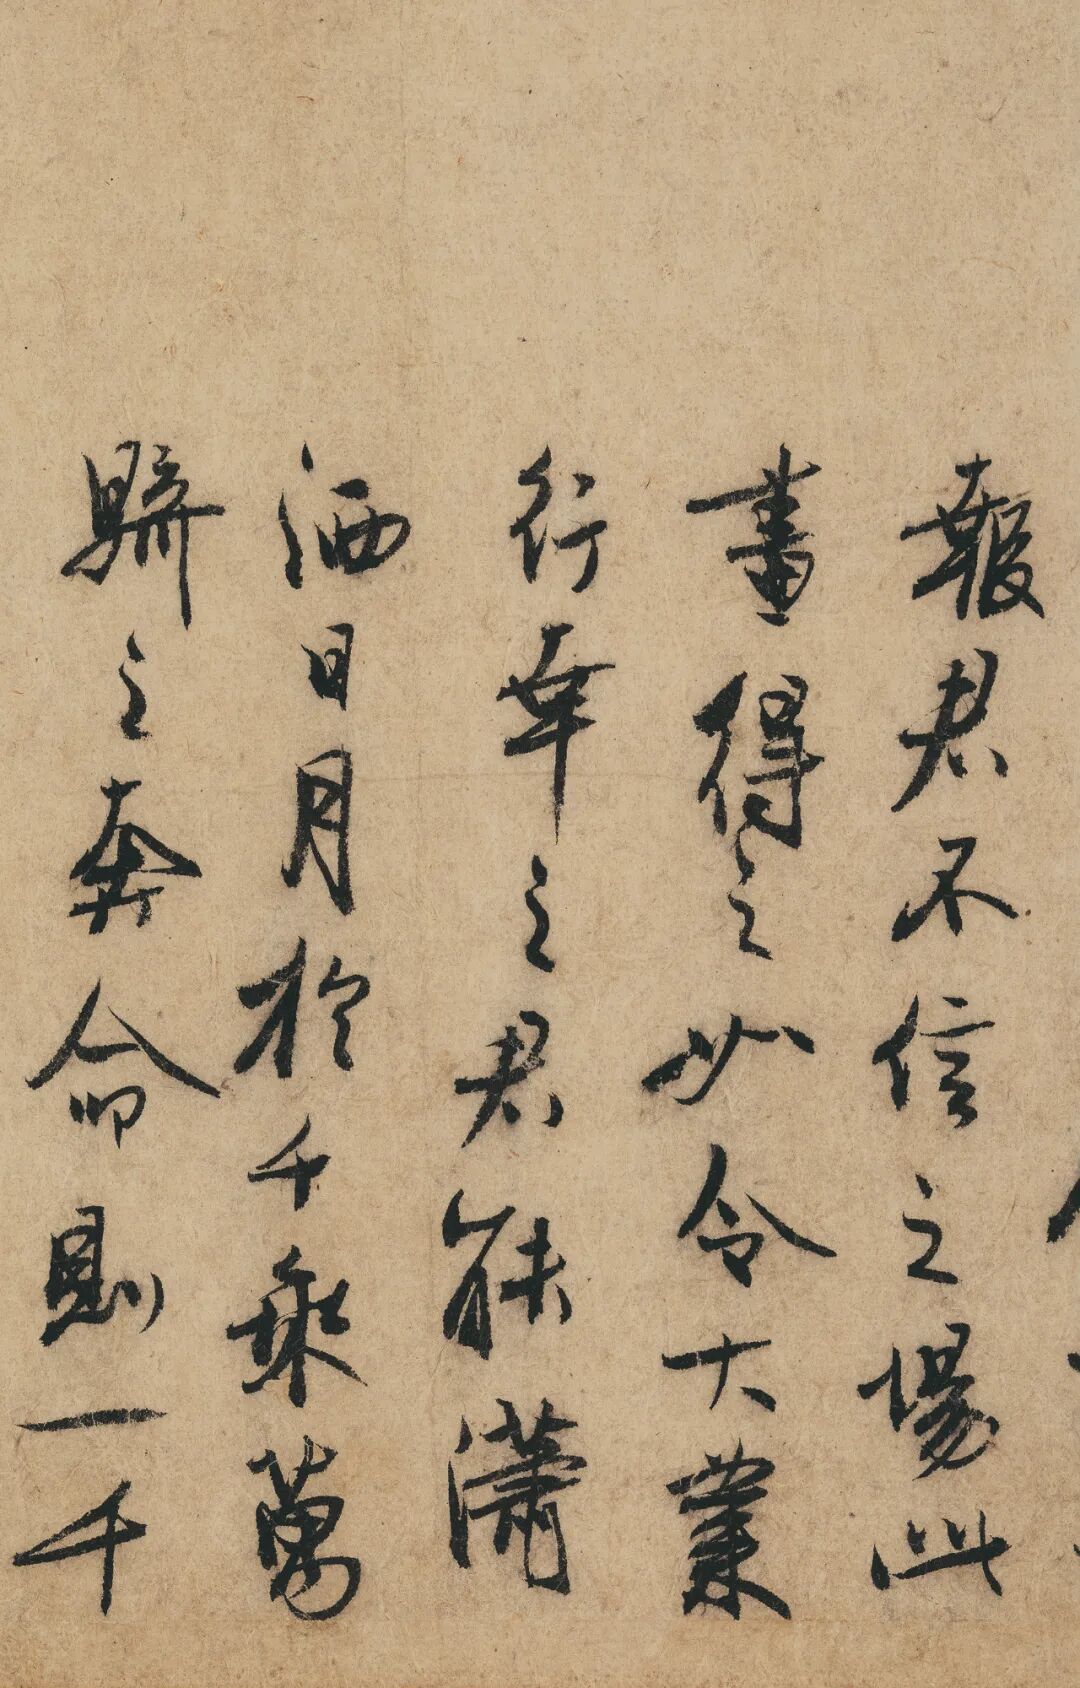 報君不信之場此
畫得之妙令大業
行幸之君能瀟
洒日月於千乘萬
騎之奔命則一千